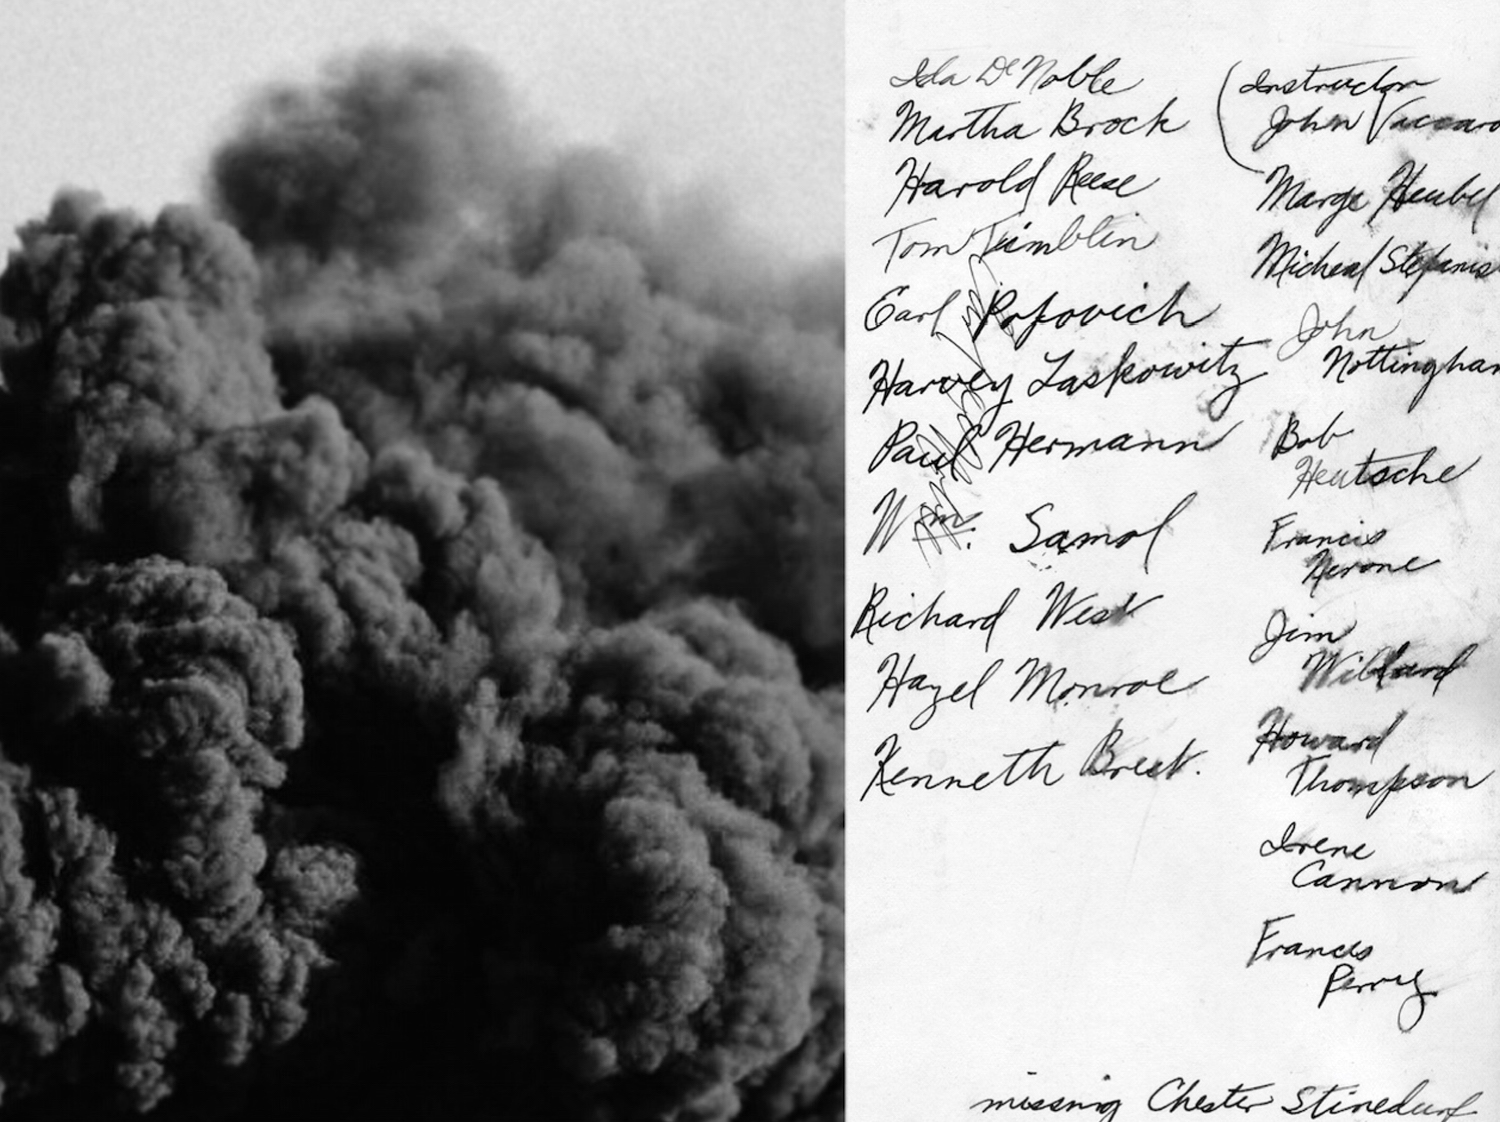 Ida De Noble
Martha Brock
Harold Reese
Tom Timblin
Earl Popovich
Harvey Laskowitz
Paul Hermann
Wm. Samol
Richard West
Hazel Monroe
Kenneth
(Instructor
John Vaccaro
Marge Heubel
Micheal Stefanis
John
Nottingham
Bob
Heutsche
Francis
Jim
Willard
Howard
Thompson
Irene
Cannon
Frances
Perry
missing Chester